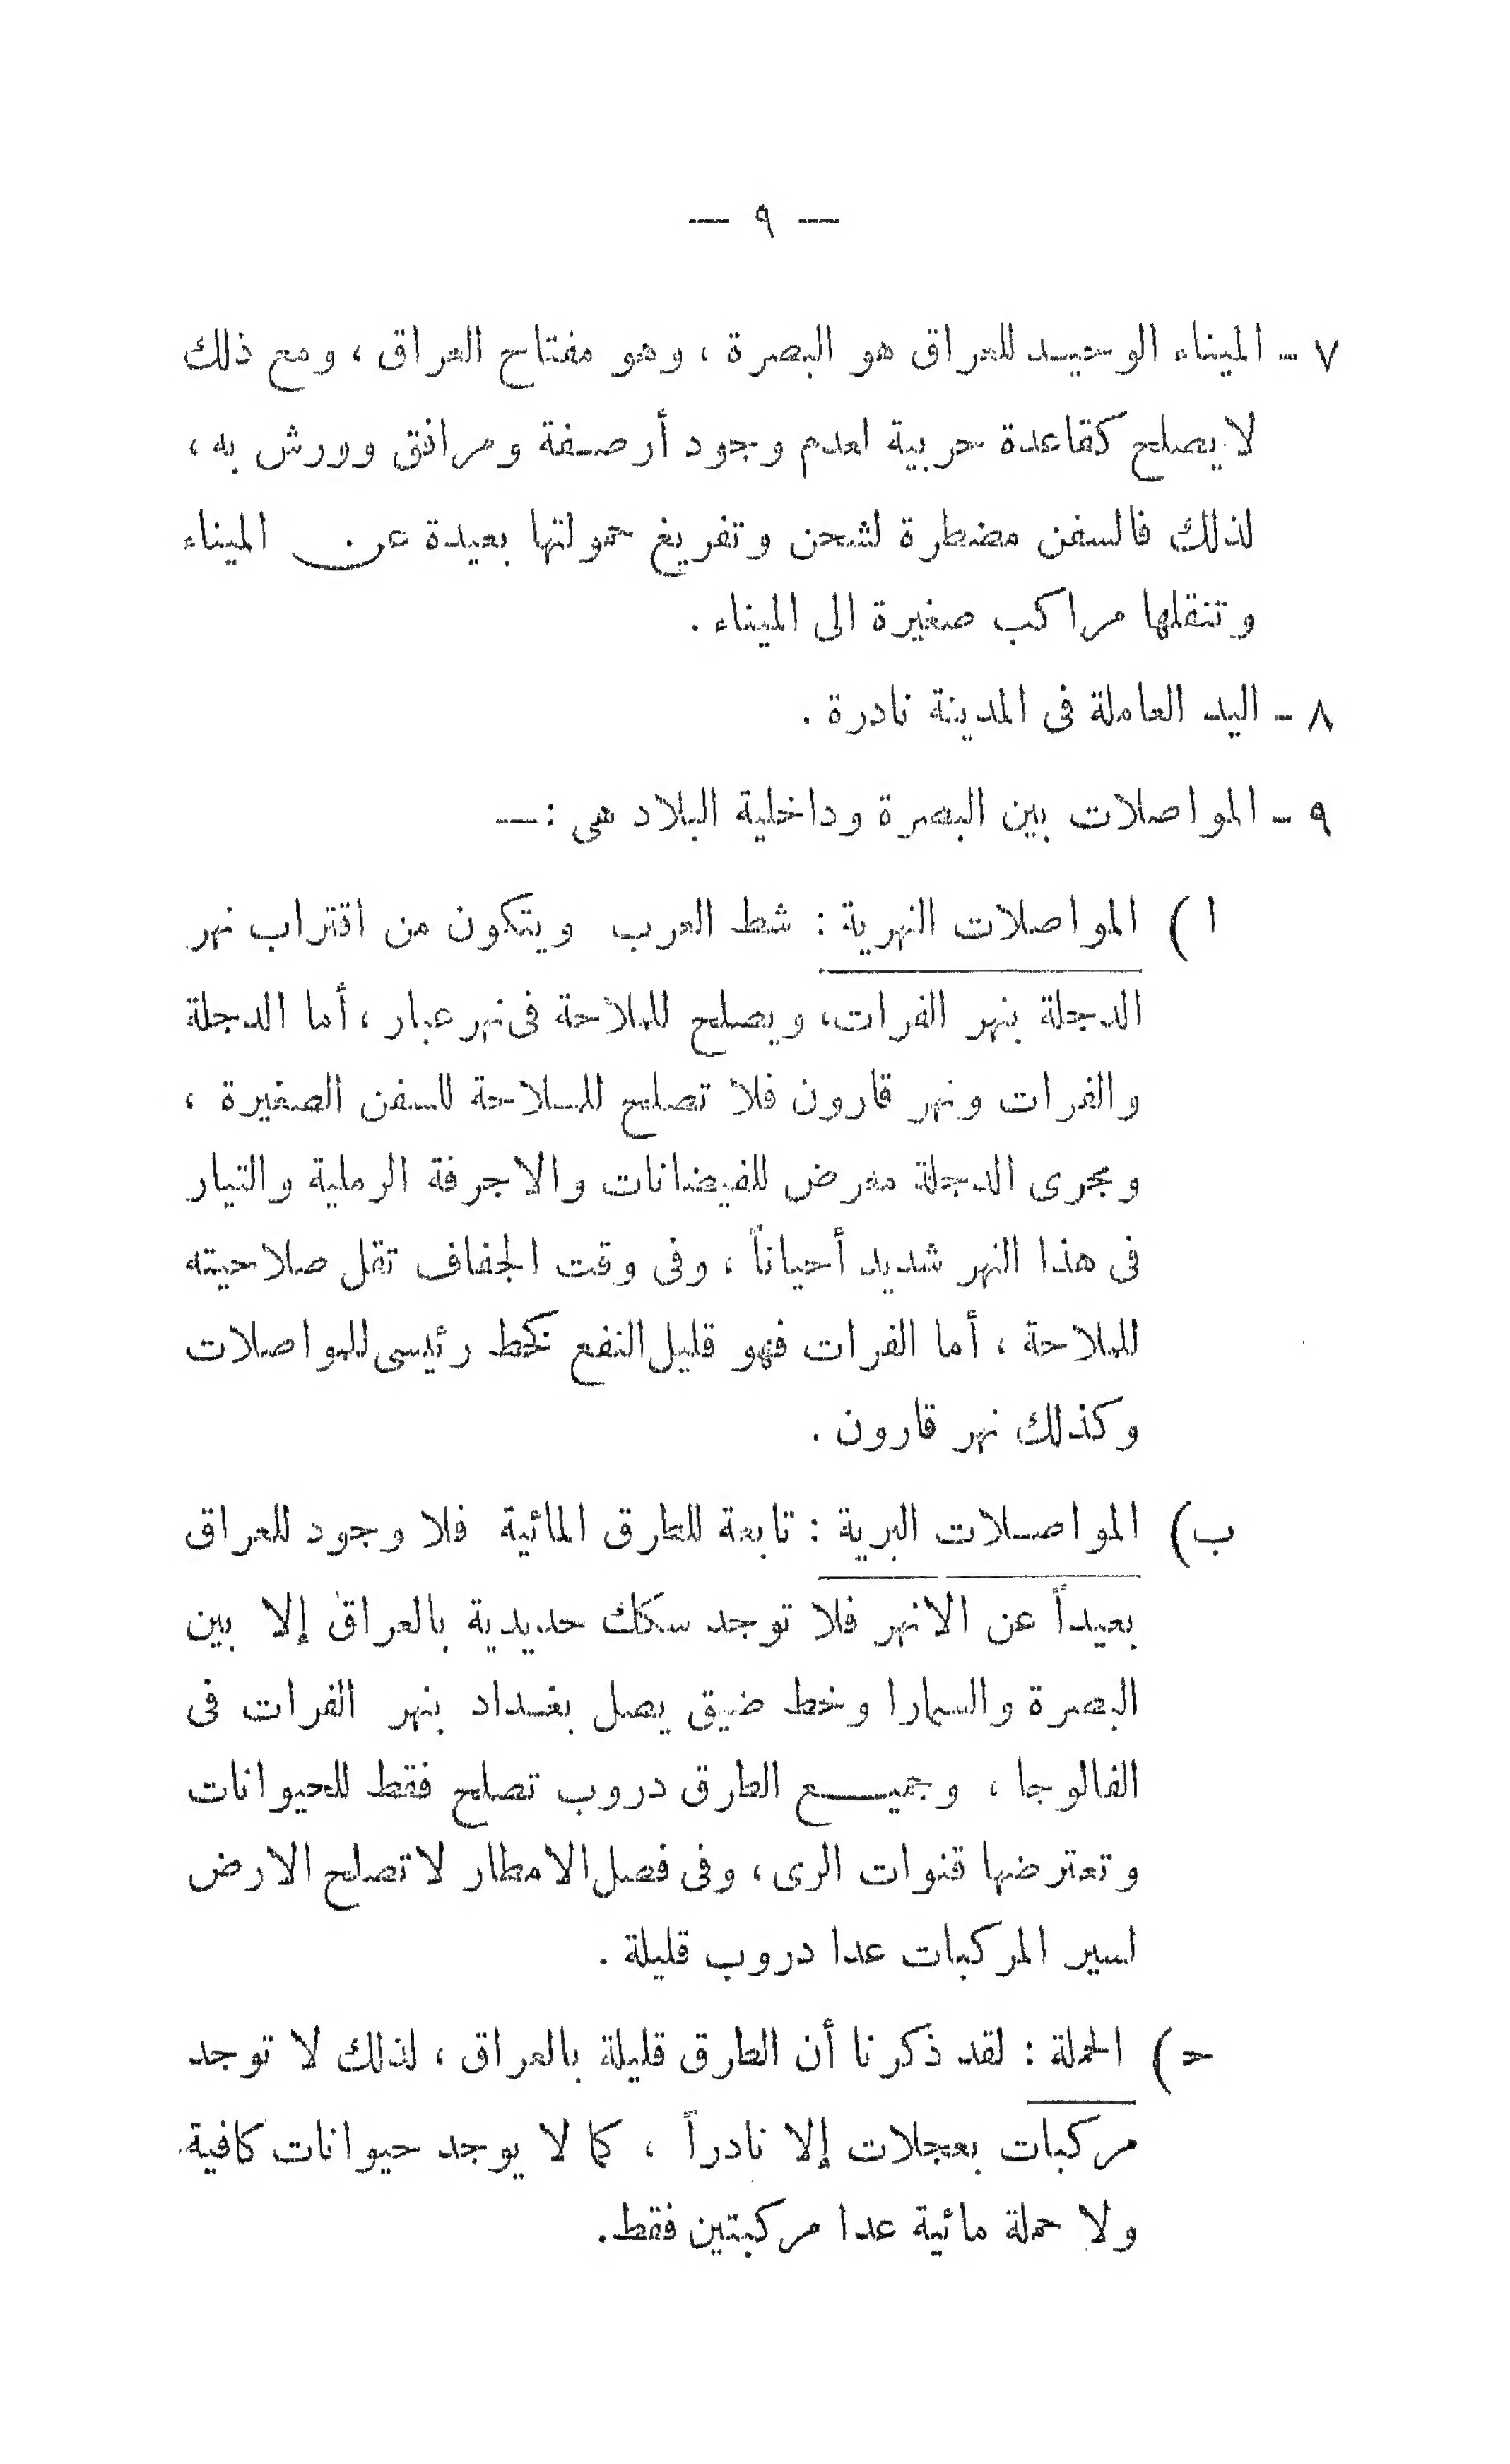 — ٩ —
٧ - الميناء الوحيد للعراق هو البصرة ، وهو مفتاح العراق ، ومع ذلك
لا يصلح كقاعدة حربية لعدم وجود أرصفة ومرافق وورش به ،
لذلك فالسفن مضطرة لشحن وتفريغ حمولتها بعيدة عن الميناء
وتنقلها مراكب صغيرة الى الميناء .
٨ - اليد العاملة فى المدينة نادرة .
٩ - المواصلات بين البصرة وداخلية البلاد هى : —
ا ) المواصلات النهرية : شط العرب ويتكون من اقتراب نهر
الدجلة بنهر الفرات ، ويصلح للملاحة فى نهر عبار ، أما الدجلة
والفرات ونهر قارون فلا تصلح للملاحة للسفن الصغيرة ،
ومجرى الدجلة معرض للفيضانات والاجرفة الرملية والتيار
فى هذا النهر شديد أحياناً ، وفى وقت الجفاف تقل صلاحيته
للملاحة ، أما الفرات فهو قليل النفع كخط رئيسى للمواصلات
وكذلك نهر قارون .
ب ) المواصلات البرية : تابعة للطرق المائية فلا وجود للعراق
بعيداً عن الانهر فلا توجد سكك حديدية بالعراق إلا بين
البصرة والسمارا وخط ضيق يصل بغداد بنهر الفرات فى
الفالوجا ، وجميع الطرق دروب تصلح فقط للحيوانات
وتعترضها قنوات الرى ، وفى فصل الامطار لا تصلح الارض
لسير المركبات عدا دروب قليلة .
حـ ) الحملة : لقد ذكرنا أن الطرق قليلة بالعراق ، لذلك لا توجد
مركبات بعجلات إلا نادراً ، كما لا يوجد حيوانات كافية
ولا حملة مائية عدا مركبتين فقط .